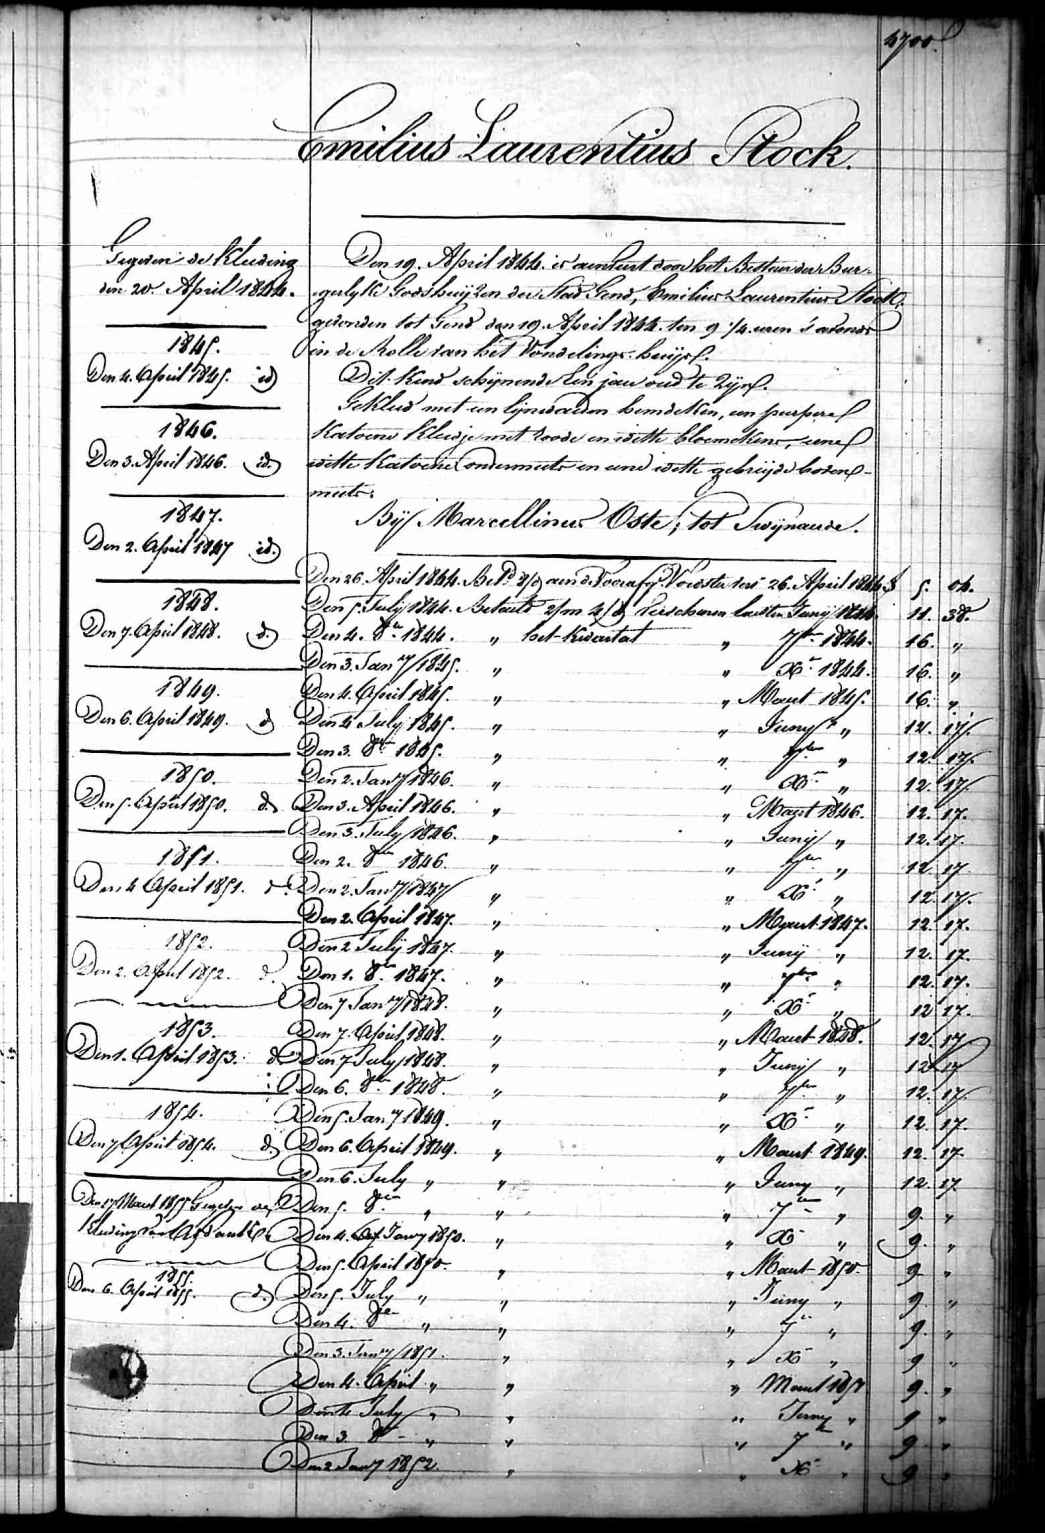 4700.
Emilius Laurentius Stock.
Gegeven de kleeding
den 20 April 1844.
1845.
Den 4. April 1845. id
1846.
Den 3. April 1846. id.
1847.
Den 2. April 1847 id.
1848.
Den 7. April 1848. d.
1849.
Den 6. April 1849. d
1850.
Den 5. April 1850. d
1851.
Den 4 April 1851. d.
1852.
Den 2. April 1852. d.
1853.
Den 1. April 1853. d
1854.
Den 7 April 1854. d
Den 17 Maart 1855 Gegeven
kleeding van
1855.
Den 6. April 1855. d.
Den 19. April 1844. is aenveert door het Bestuer der Bur-
gerlyke Godshuijzen der Stad Gend, Emilius Laurentius Stock,
gevonden tot Gend den 19. April 1844. ten 9 1/4 uren 's avonds
in de Rolle van het Vondelings-huijs.
Dit Kind schijnende Een jaer oud te Zijn.
Gekleed met een lijnwaeden hemdeken, een purperen
Katoene kleedje met roode en witte bloemekens, eene
witte Katoene ondermuts en eene witte gebreijde boven-
muts.
Bij Marcellinus Oste, tot Swijnaerde.
Den 26. April 1844. Bet.d aen de Voedster 26. April 1844 5. 04.
Den 5. July 1844. Betaelt Verschenen lesten Juny 1844 11. 38.
Den 4. 8er 1844. „ het Kwartael „ 7er 1844. 16. „
Den 3. Jany 1845. „ „ Xr 1844. 16. „
Den 4. April 1845. „ „ Maert 1845. 16. „
Den 4 July 1845. „ „ Juny „ 12. 17.
Den 3. 8er 1845. „ „ 7er „ 12. 17.
Den 2. Jany 1846. „ „ Xr „ 12. 17
Den 3. April 1846. „ „ Maert 1846. 12. 17.
Den 3. July 1846. „ „ Juny „ 12. 17.
Den 2. 8er 1846. „ „ 7er „ 12. 17
Den 2. Jany 1847 „ „ Xr „ 12. 17.
Den 2. April 1847. „ „ Maert 1847. 12. 17.
Den 2 July 1847. „ „ Juny „ 12. 17.
Den 1. 8er 1847. „ „ 7er „ 12. 17.
Den 7 Jany 1848. „ „ Xr „ 12 17.
Den 7. April 1848. „ „ Maert 1848. 12. 17
Den 7 July 1848. „ „ Juny „ 12 17
Den 6. 8er 1848. „ „ 7er „ 12. 17.
Den 5. Jany 1849. „ „ Xr „ 12. 17.
Den 6. April 1849. „ „ Maert 1849. 12. 17.
Den 6. July „ „ „ Juny „ 12. 17
Den 5. 8er „ „ „ 7er „ 9. „
Den 4. Jany 1850. „ „ Xr „ 9. „
Den 5. April 1850. „ „ Maert 1850. 9 „
Den 5. July „ „ „ Juny „ 9. „
Den 4. 8er „ „ „ 7r „ 9. „
Den 3. Jany 1851. „ „ Xr „ 9 „
Den 4. April „ „ „ Maert 1851 9. „
Den 4 July „ „ „ Juny „ 9 „
Den 3 8r „ „ „ 7r „ 9 „
Den 2 Jany 1852. „ „ Xr „ 9 „